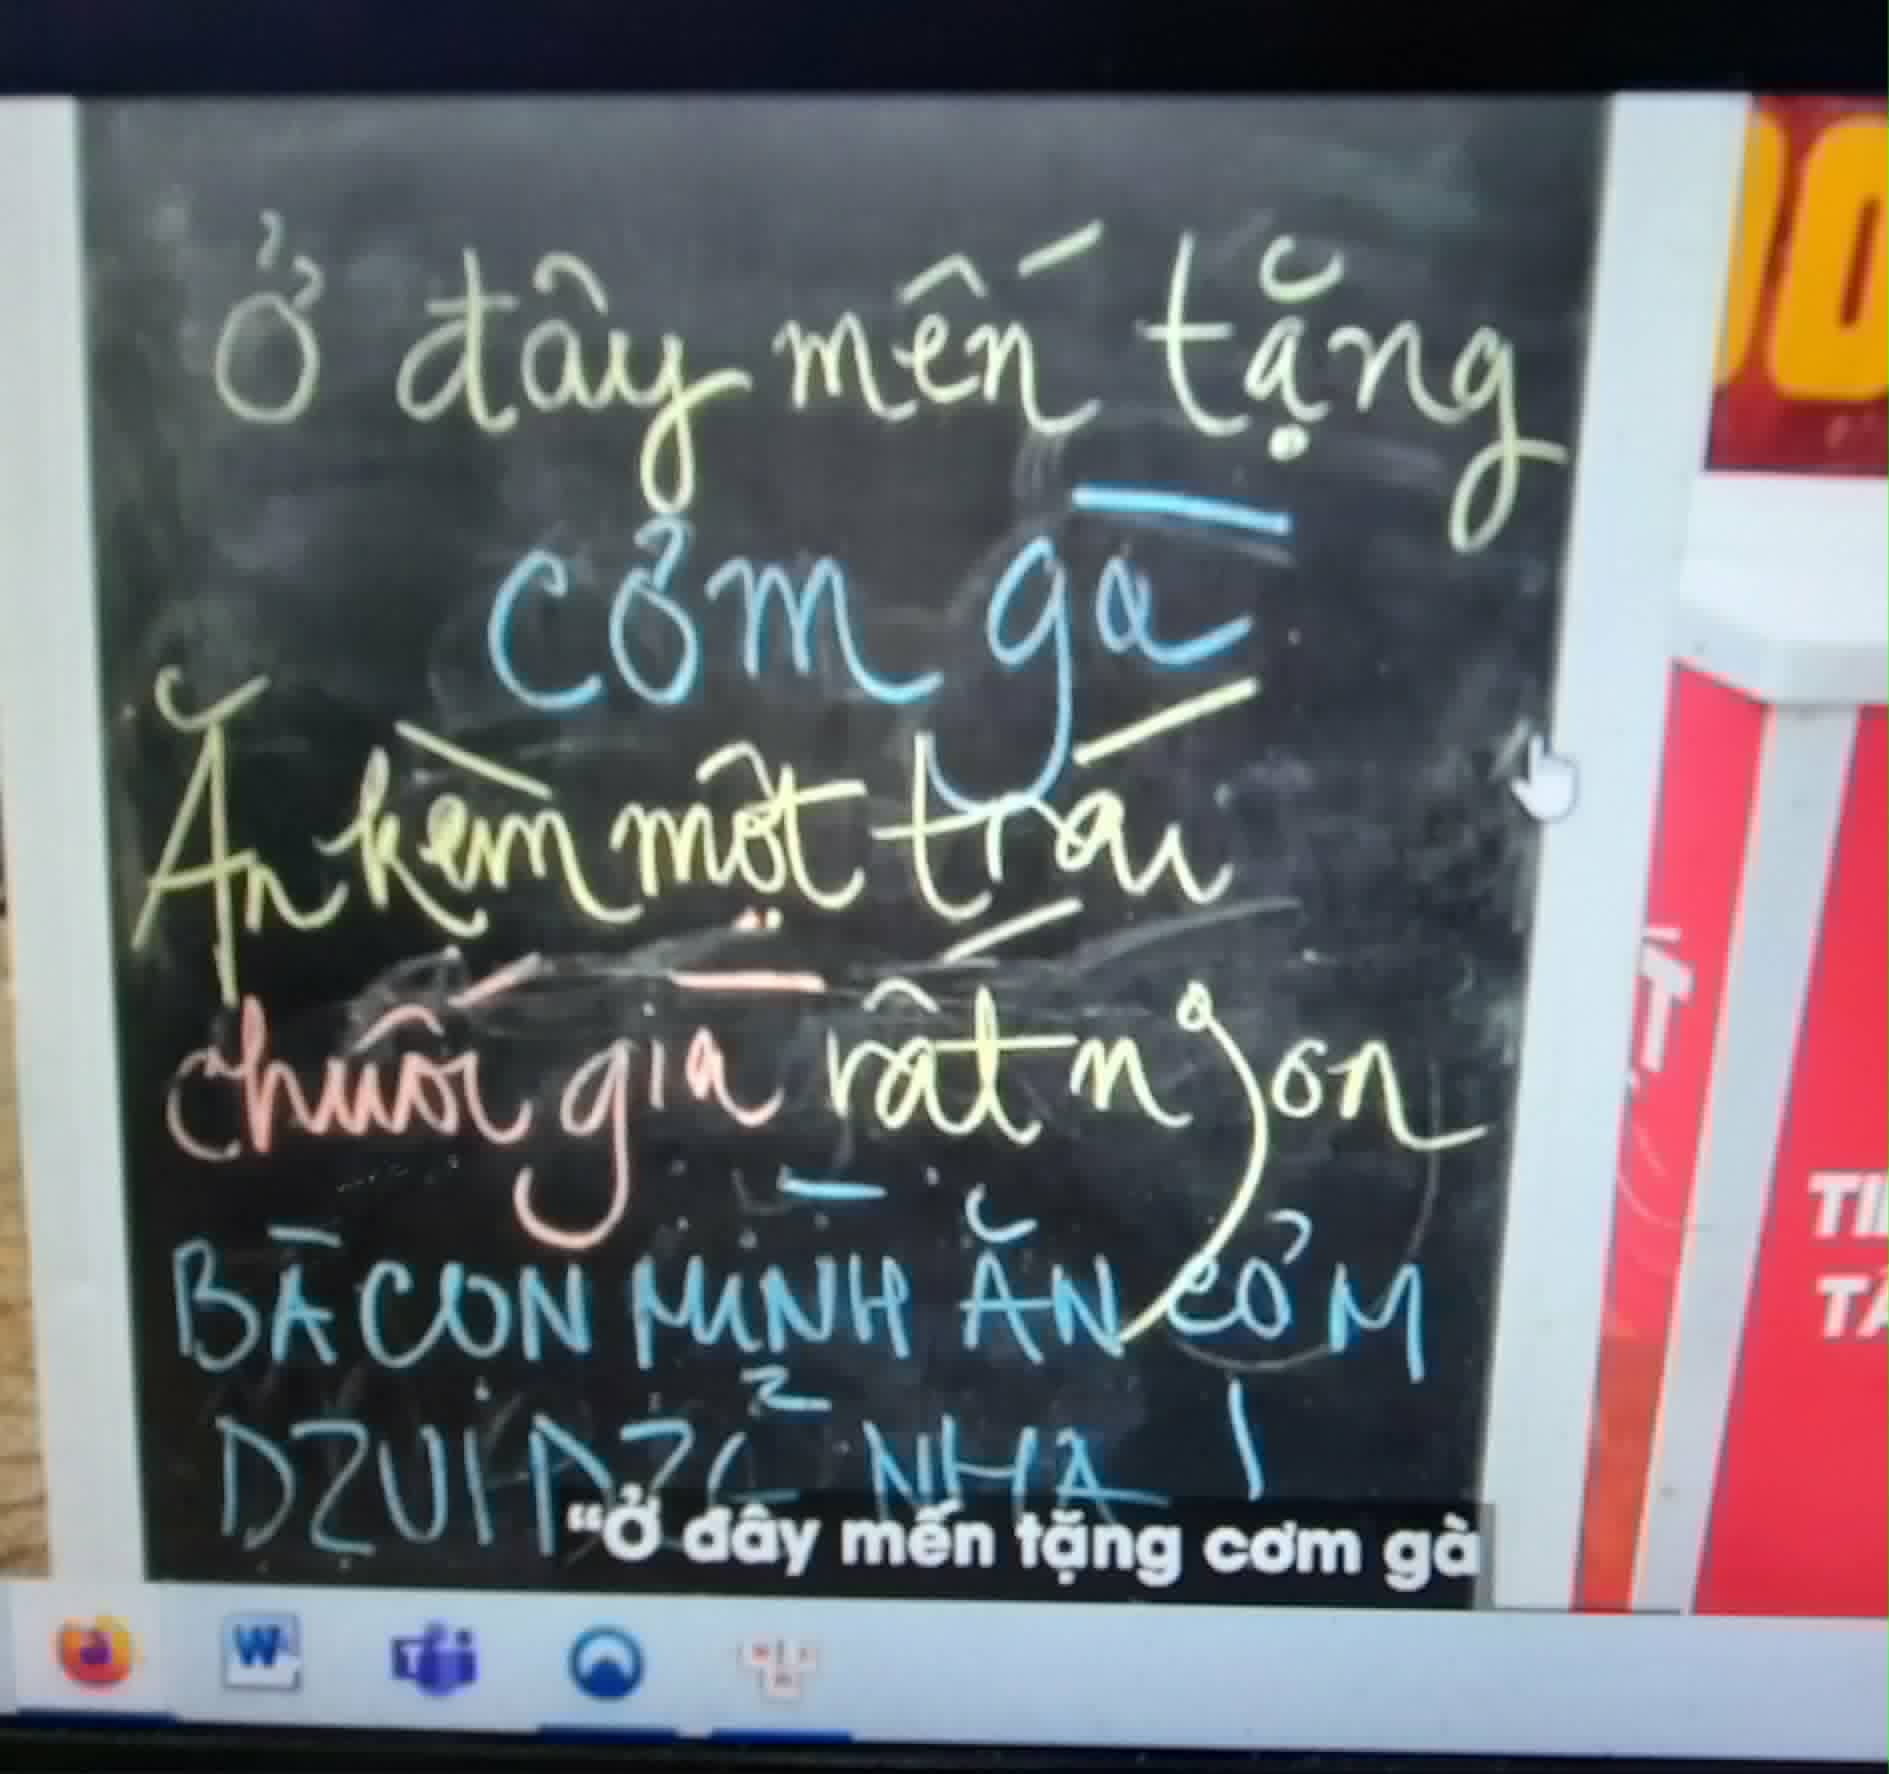 Ở đây mến tặng
cơm gà
Ăn kèm một trái
chuối già rất ngon
BÀ CON MÌNH ĂN CƠM
DZUI DZẺ NHA !
“Ở đây mến tặng cơm gà
TI
TÀ
W